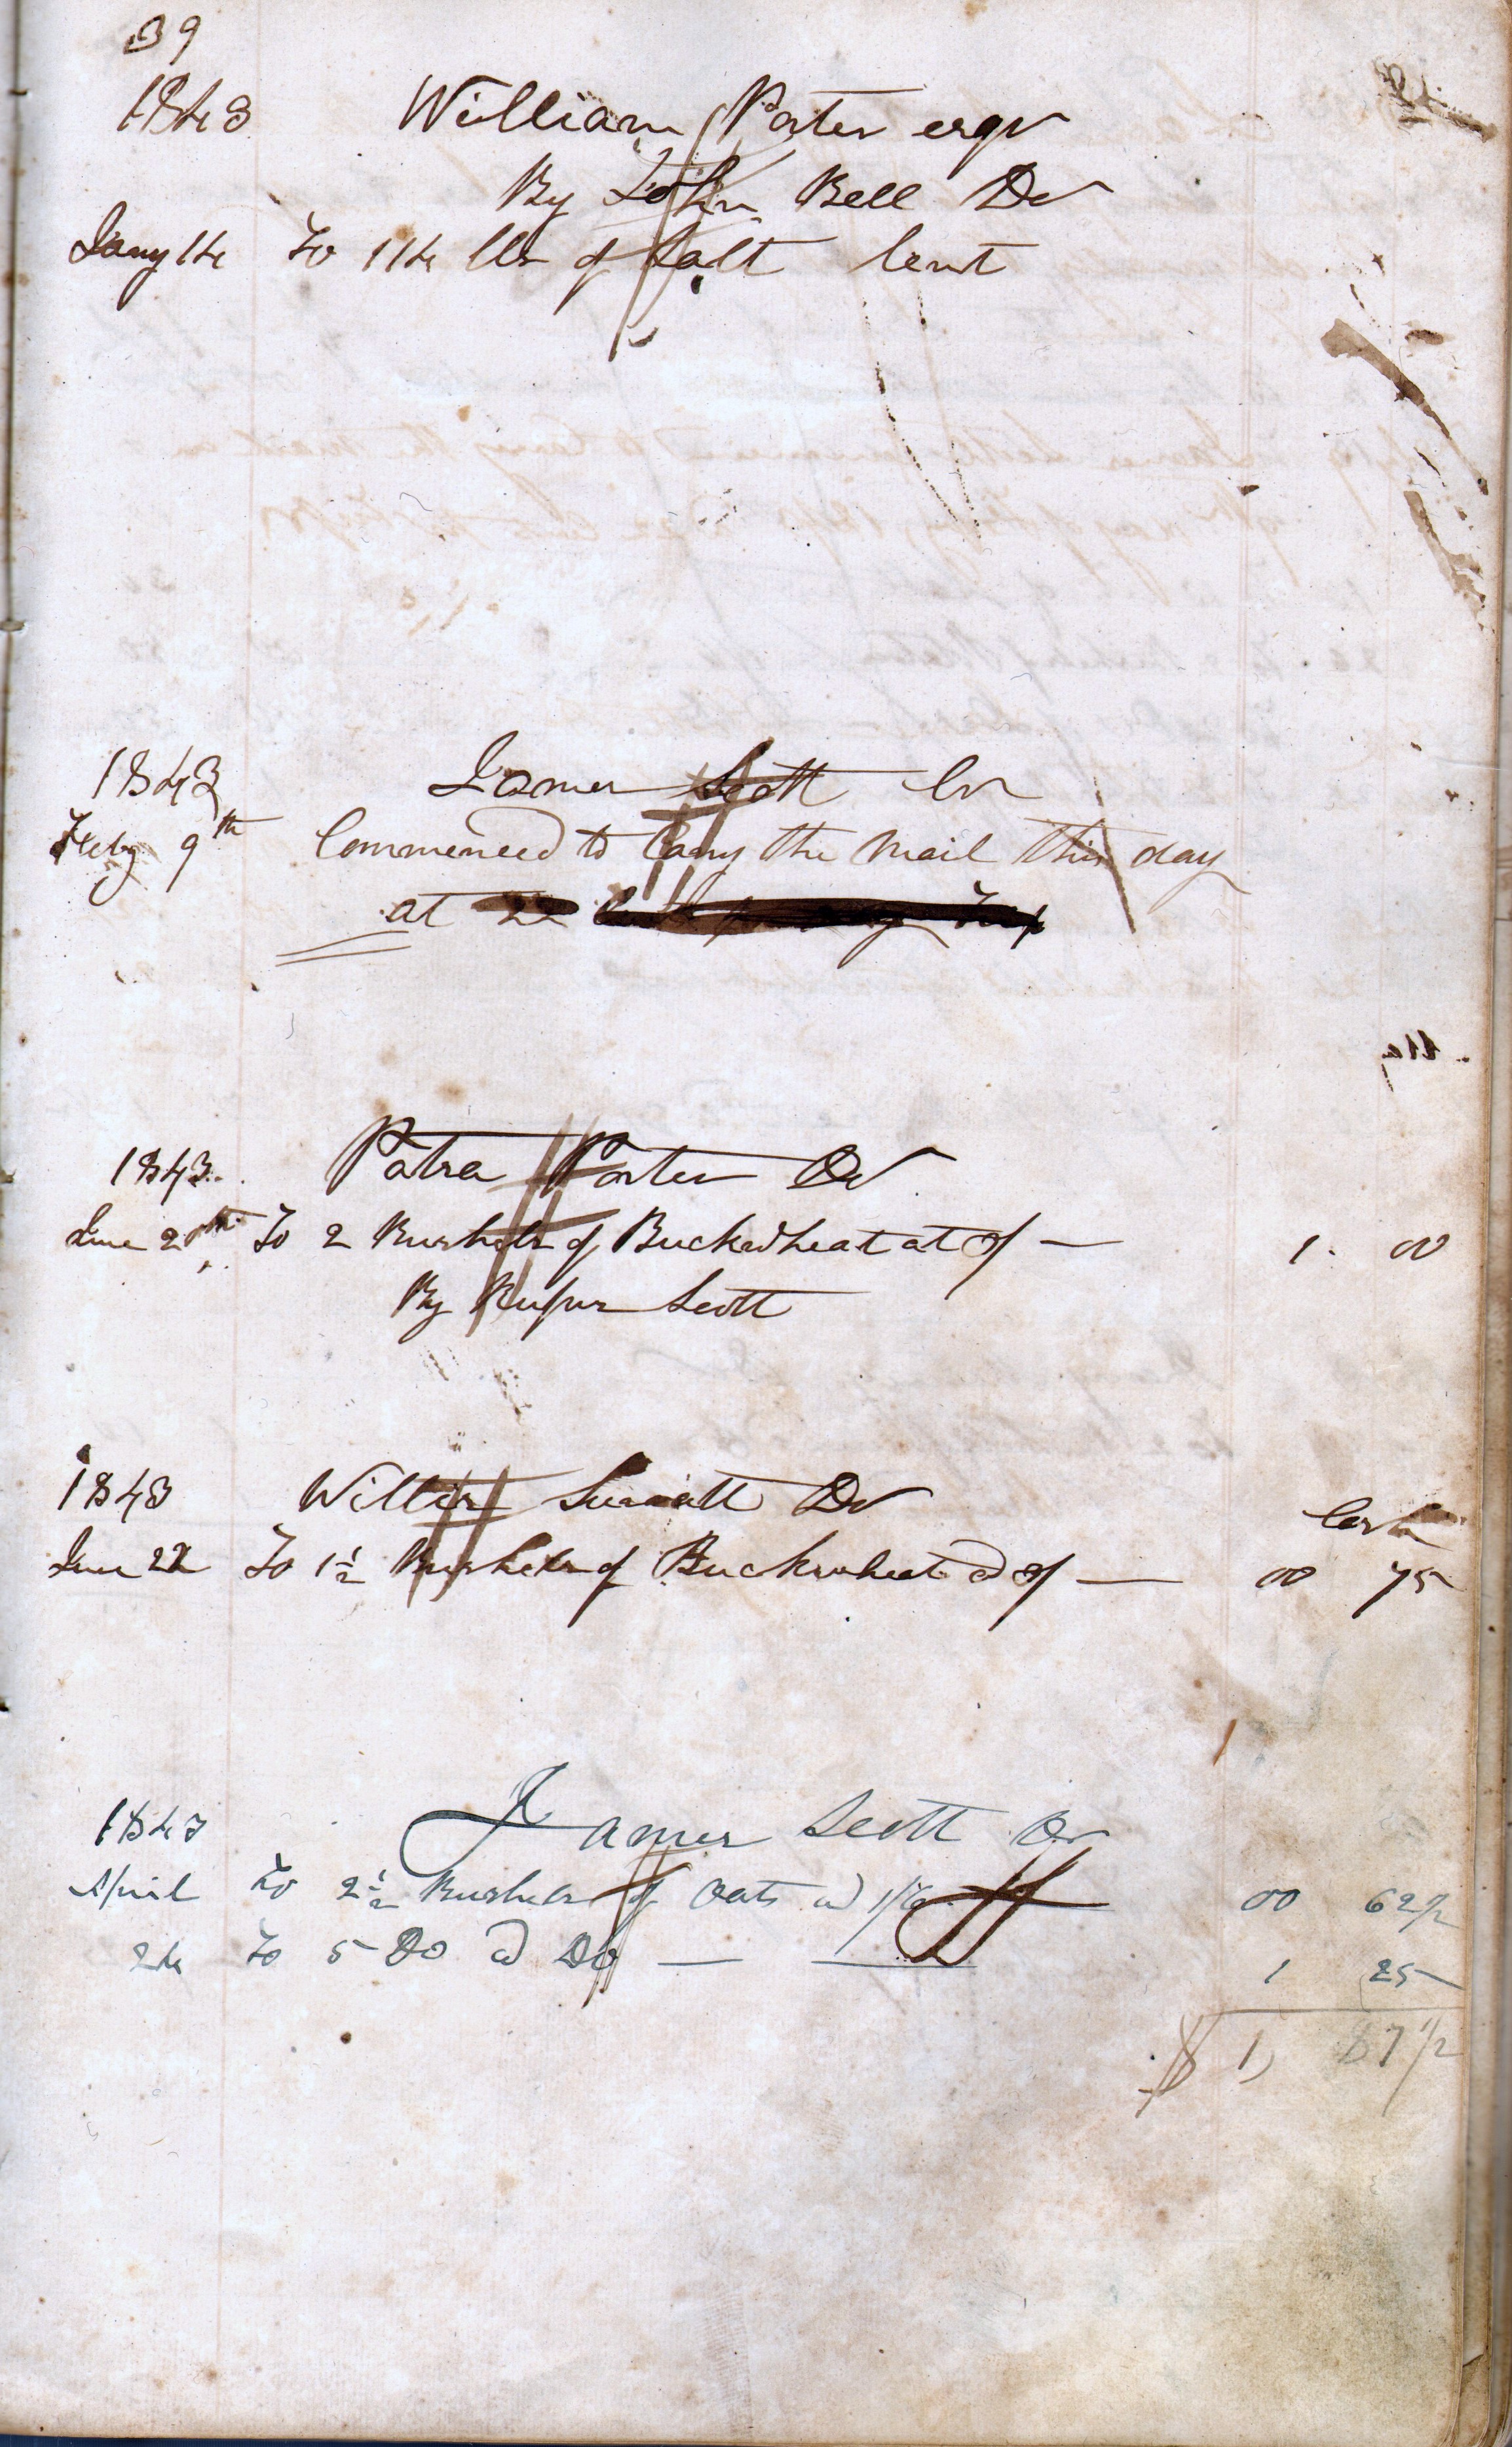 39
1843 William Porter esqr
By John Bell Dr
Jany 14 To 114 lbs of Salt lent
1843 James Scott Cr
Feby 9th Commenced to Carry the Mail this day
at 22
1843 Patra Porter Dr
June 20th To 2 Bushels of Buckwheat at 3/ — 1. 00
By Rufus Scott
1843 Willis Surratt Dr
June 22 To 1 1/2 Bushels of Buckwheat @ 3/ — 00 75
1843 James Scott Dr
April To 2 1/2 Bushels of Oats @ 1/6 00 62 1/2
24 To 5 Do @ Do — 1 25
$ 1, 87 1/2